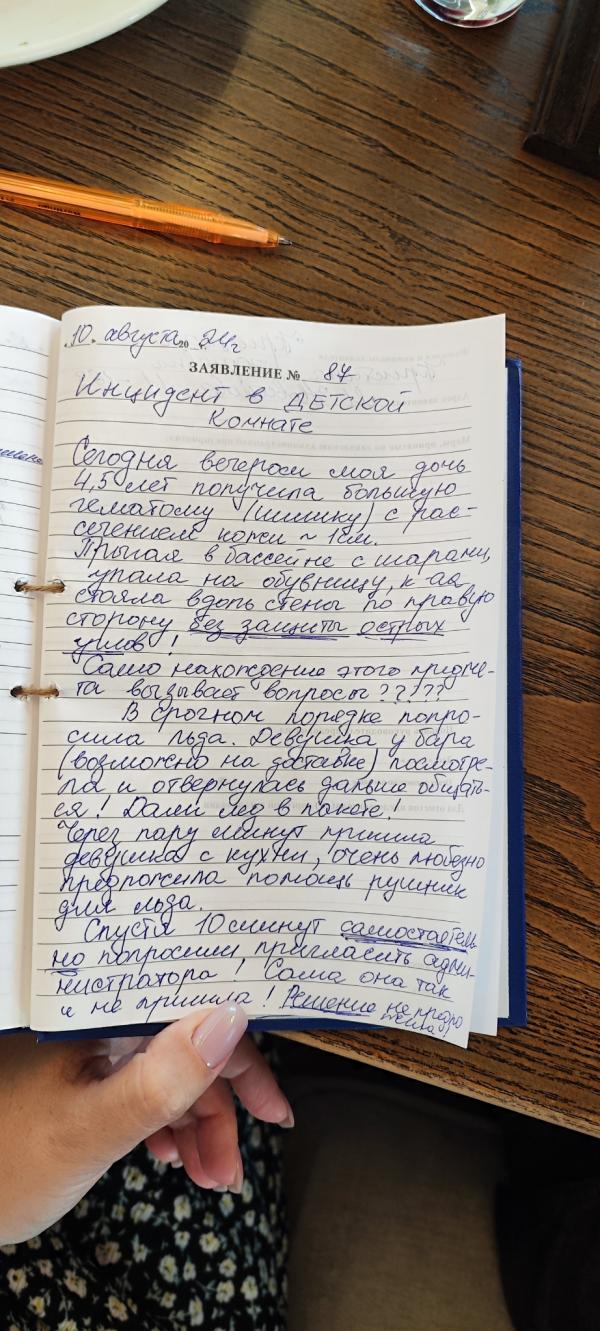 „10" августа 2024г
ЗАЯВЛЕНИЕ № 87
Инцидент в ДЕТСКОЙ
Комнате
Сегодня вечером моя дочь
4,5 лет получила большую
гематому (шишку) с рас-
сечением кожи ~ 1см.
Прыгая в бассейне с шарами,
упала на обувницу, к-ая
стояла вдоль стены по правую
сторону без защиты острых
углов!
Само нахождение этого предме-
та вызывает вопросы?????
В срочном порядке попро-
сила льда. Девушка у бара
(возможно на доставке) посмотре-
ла и отвернулась дальше общать-
ся! Дали лёд в пакете!
Через пару минут пришла
девушка с кухни, очень любезно
предложила помощь рушник
для льда.
Спустя 10 минут самостоятель
но попросили пригласить адми-
нистратора! Сама она так
и не пришла! Решение не предло
жила!